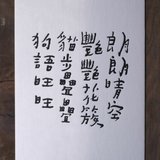 朗朗晴空
豔豔花簇
貓步疊疊
狗語旺旺